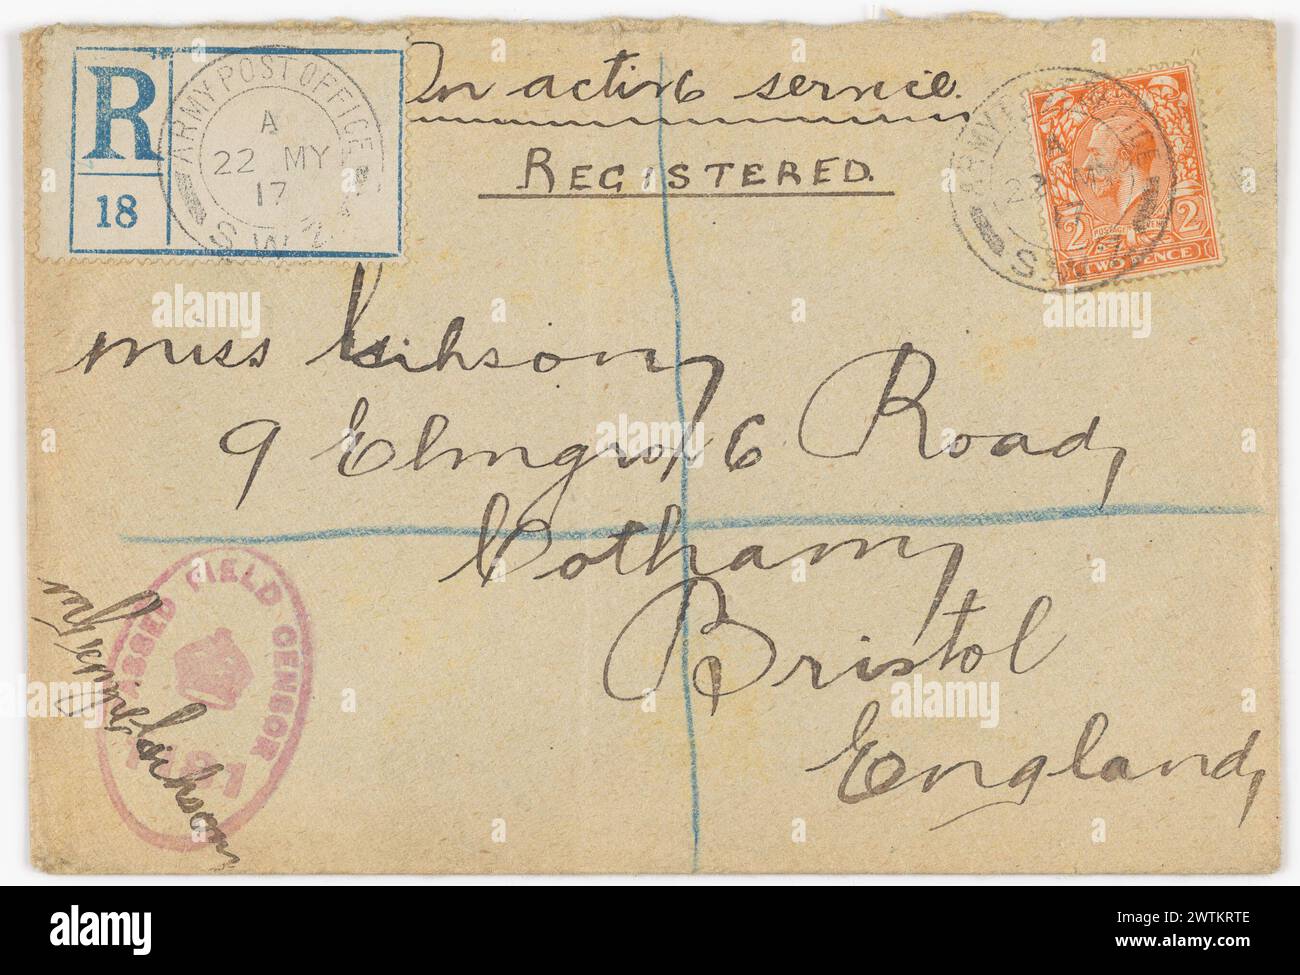 R
18
ARMY POST OFFICE
A
22 MY
17
S.W.2
On active service.
REGISTERED.
ARMY
A
22 MY
17
S.
2 2
POSTAGE REVENUE
TWO PENCE
Miss
9 Elmgrove Road,
Cotham,
Bristol
England,
PASSED FIELD CENSOR
alamy
Image ID: 2WTKRTE
www.alamy.com